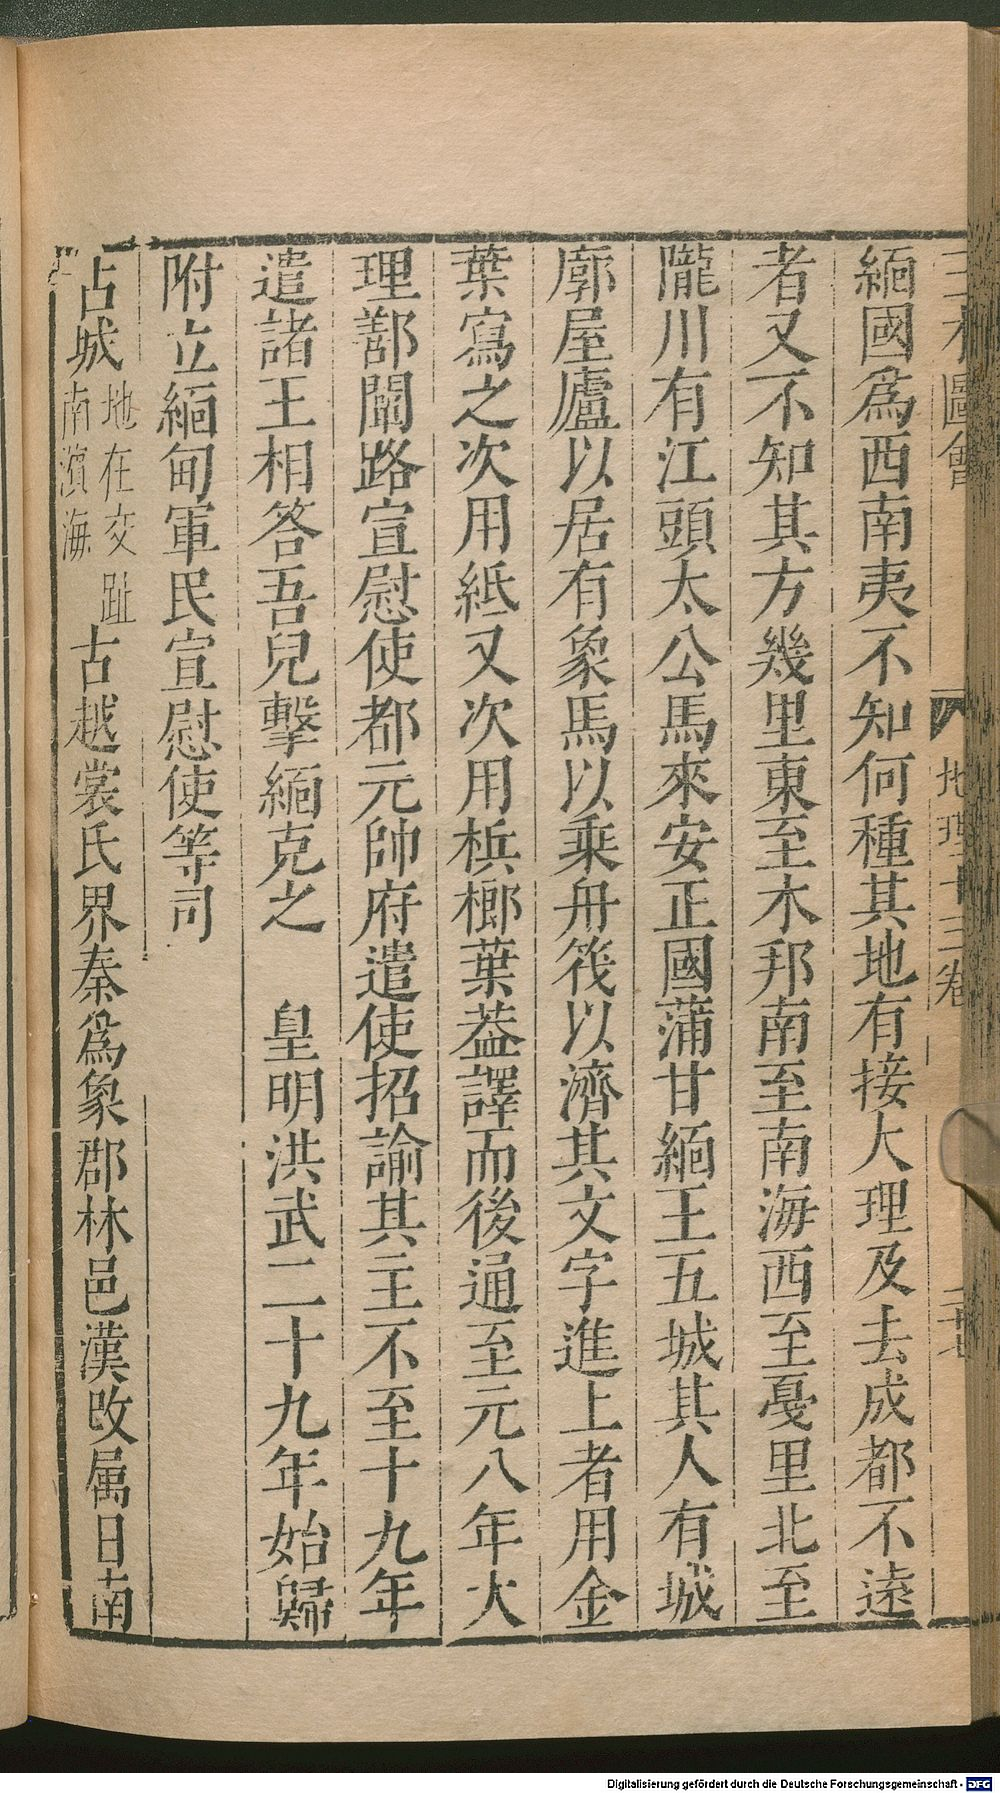 三才圖會 地理十三卷 二十七
緬國爲西南夷不知何種其地有接大理及去成都不遠
者又不知其方幾里東至木邦南至南海西至戞里北至
隴川有江頭太公馬來安正國蒲甘緬王五城其人有城
廓屋廬以居有象馬以乘舟筏以濟其文字進上者用金
葉寫之次用紙又次用梹榔葉葢譯而後通至元八年大
理鄯闡路宣慰使都元帥府遣使招諭其主不至十九年
遣諸王相答吾兒擊緬克之 皇明洪武二十九年始歸
附立緬甸軍民宣慰使等司
占城地在交趾南濵海古越裳氏界秦爲象郡林邑漢改属日南
Digitalisierung gefördert durch die Deutsche Forschungsgemeinschaft - DFG